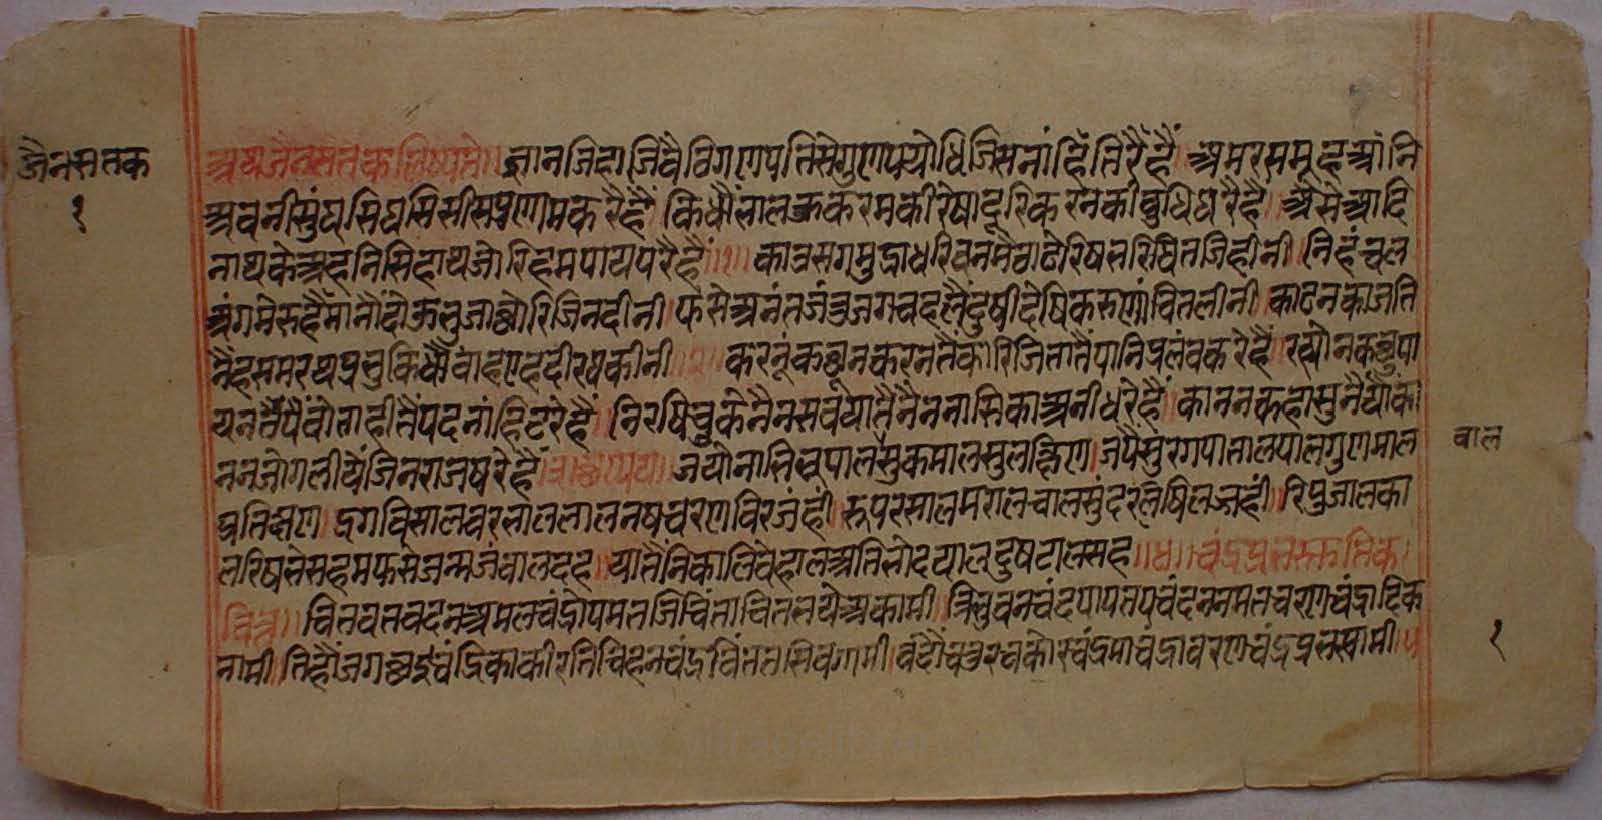 जैनसतक
१
अथ जैनसतक लिष्यते ॥ ज्ञानजिहाजिवैठिगणपतिसेगुणपयोधिजिसनांहिंतिरैंहैं । अमरसमूहआंनि
अवनीसुंघसिघसिसीसप्रणामकरैंहैं । किधौंभालकुकरमकीरेषादूरिकरनकीबुधिधरैहैं । असेआदि
नाथकेअहनिसिहाथजोरिहमपायपरैहैं ॥१॥ काउसगमुद्राधरिवनमैठाढेरिषभरिधितजिहीनी । निहचल
अंगमेरुहैमांनौंदोऊभुजाछोरिजिनदीनी । फसेअनंतजंतुजगचहलैदुषीदेषिकरुणांचितलीनी । काढनकाजति
नैंहसमरथप्रभुकिधौंवांहएहदीरघकीनी ॥२॥ करनूंकछूनकरनतैंकारिजतातैंपानिप्रलंवकरेहैं । रह्यौनकछुपा
यनतैंपैंवोताहीतैंपदनांहिटरेहैं । निरषिचुकेनैनसवयातैंनैननासिकाअनीधरेहैं । काननकहासुनैंयौंका
ननजोगलीयेंजिनराजषरेहैं ॥३॥ छप्पय ॥ जयोनाभिभूपालसुकमालसुलछिण । जयैसुरगपातालपालगुणमाल
प्रतिछण । द्रगविसालवरभाललालनषचरणविरजंहीं । रूपरसालमरालचालसुंदरलषिलज्जहीं । रिपुजालका
लरिषभेसहमफसेजन्मजंवालदह । यातैंनिकालिवेहालअतिभोदयालदुषटालसह ॥४॥ चंद्रप्रभस्तुतिक
वित्त ॥ चितवतवदनअमलचंद्रोपमतजिचिंताचितभयेअकामी । त्रिभुवनचंदपापतपचंदननमतचरणचंद्रादिक
नामी । तिहौंजगछईचंद्रिकाकीरतिचिहनचंद्रचिंततसिवगामी । वंदौंचतुरचकोरचंद्रमाचंद्रावरणचंद्रप्रभस्वामी ॥५
वाल
१